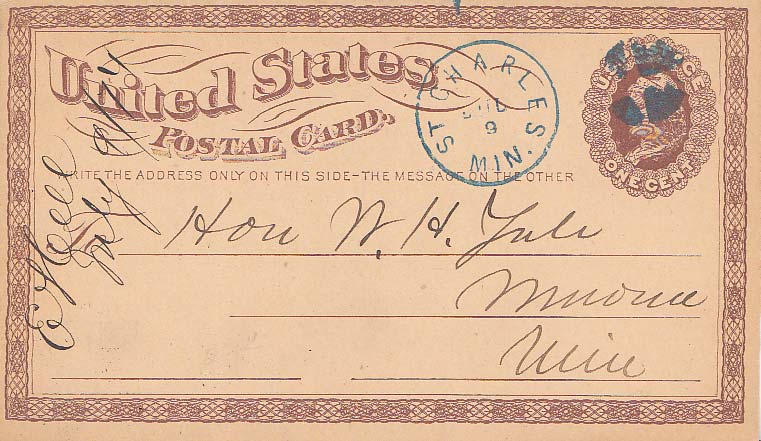 United States
POSTAL CARD.
ST. CHARLES.
JUL
9
MIN.
U.S. POSTAGE
ONE CENT
WRITE THE ADDRESS ONLY ON THIS SIDE-THE MESSAGE ON THE OTHER
To
Hon W. H. Yale
Winona
Minn
July 9/74